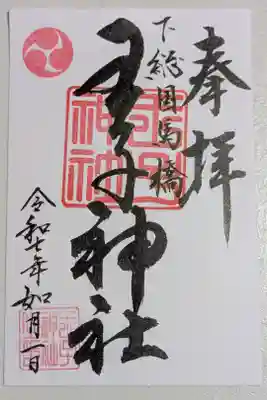 奉拝
下総国馬橋
王子神社
令和七年如月一日